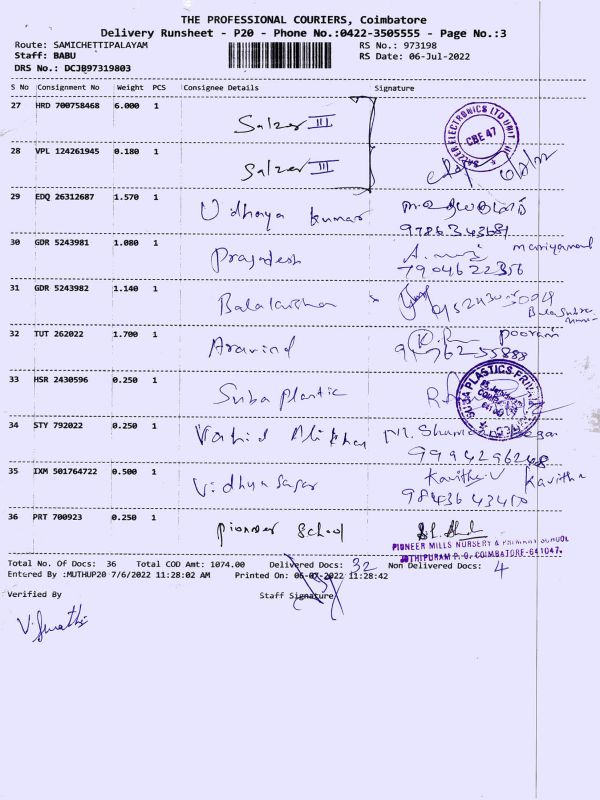 THE PROFESSIONAL COURIERS, Coimbatore
Delivery Runsheet - P20 - Phone No.:0422-3505555 - Page No.:3
Route: SAMICHETTIPALAYAM
RS No.: 973198
Staff: BABU
RS Date: 06-Jul-2022
DRS No.: DCJB97319803
S No Consignment No Weight PCS Consignee Details Signature
27 HRD 700758468 6.000 1 Salzer III
SALZER ELECTRONICS LTD UNIT III
CBE 47
28 VPL 124261945 0.180 1 Salzer III
29 EDQ 26312687 1.570 1 Udhaya kumar
9786343681
30 GDR 5243981 1.080 1
7904622356
31 GDR 5243982 1.140 1
32 TUT 262022 1.700 1 Aravind
33 HSR 2430596 0.250 1 Suba plastic
34 STY 792022 0.250 1
9994296248
35 IXM 501764722 0.500 1 Vidhyasagar Kavitha.V Kavitha
9843643410
36 PRT 700923 0.250 1 pioneer School
PIONEER MILLS NURSERY & PRIMARY SCHOOL
JOTHIPURAM P.O. COIMBATORE-641047.
Total No. Of Docs: 36 Total COD Amt: 1074.00 Delivered Docs: 32 Non Delivered Docs: 4
Entered By :MUTHUP20 7/6/2022 11:28:02 AM Printed On: 06-07-2022 11:28:42
Verified By Staff Signature